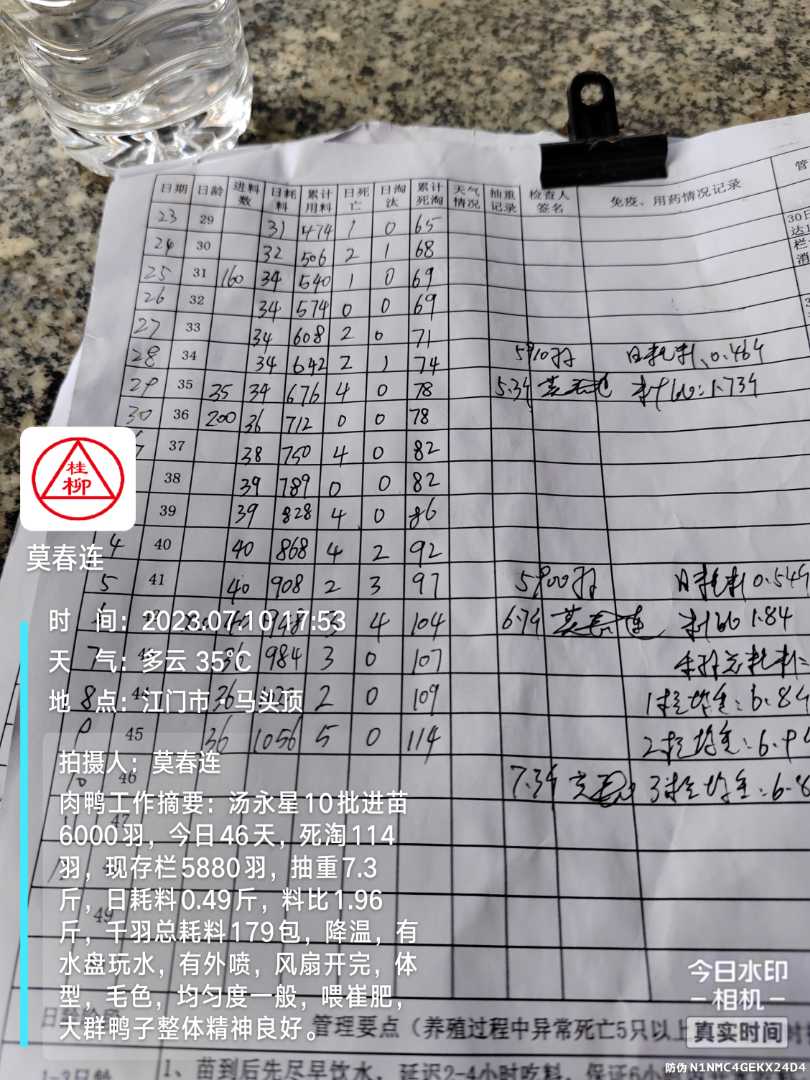 日期 日龄 进料数 日耗料 累计用料 日死亡 日淘汰 累计死淘 天气情况 抽重记录 检查人签名 免疫、用药情况记录 管
23 29 31 474 1 0 65
24 30 32 506 2 1 68
25 31 160 34 540 1 0 69
26 32 34 574 0 0 69
27 33 34 608 2 0 71
28 34 34 642 2 1 74 5910羽 日耗料、0.464
29 35 35 34 676 4 0 78 5.3斤 莫春连 料比:1.734
30 36 200 36 712 0 0 78
37 38 750 4 0 82
38 39 789 0 0 82
39 39 828 4 0 86
4 40 40 868 4 2 92
5 41 40 908 2 3 97 5900羽 日耗料0.549
948 3 4 104 6.7斤 莫春连 料比1.84
7 984 3 0 107
8 44 36 2 0 109 1栏均重:6.84
45 36 1056 5 0 114 2栏均重:6.9
10 46 7.3斤 3栏均重:6.8
47
49
桂柳
莫春连
时 间:2023.07.10 17:53
天 气:多云 35℃
地 点:江门市·马头顶
拍摄人:莫春连
肉鸭工作摘要:汤永星10批进苗
6000羽,今日46天,死淘114
羽,现存栏5880羽,抽重7.3
斤,日耗料0.49斤,料比1.96
斤,千羽总耗料179包,降温,有
水盘玩水,有外喷,风扇开完,体
型,毛色,均匀度一般,喂崔肥,
大群鸭子整体精神良好。
管理要点(养殖过程中异常死亡5只以上
1-3日龄 1、苗到后先尽早饮水,延迟2-4小时吃料,保证6小
今日水印
相机
真实时间
防伪 N1NMC4GEKX24D4